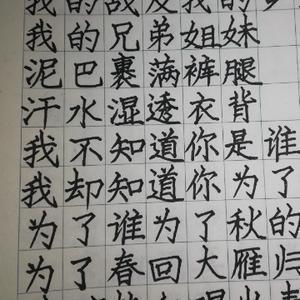 我的战友我的
我的兄弟姐妹
泥巴裹满裤腿
汗水湿透衣背
我不知道你是谁
我却知道你为了
为了谁为了秋的
为了春回大雁归